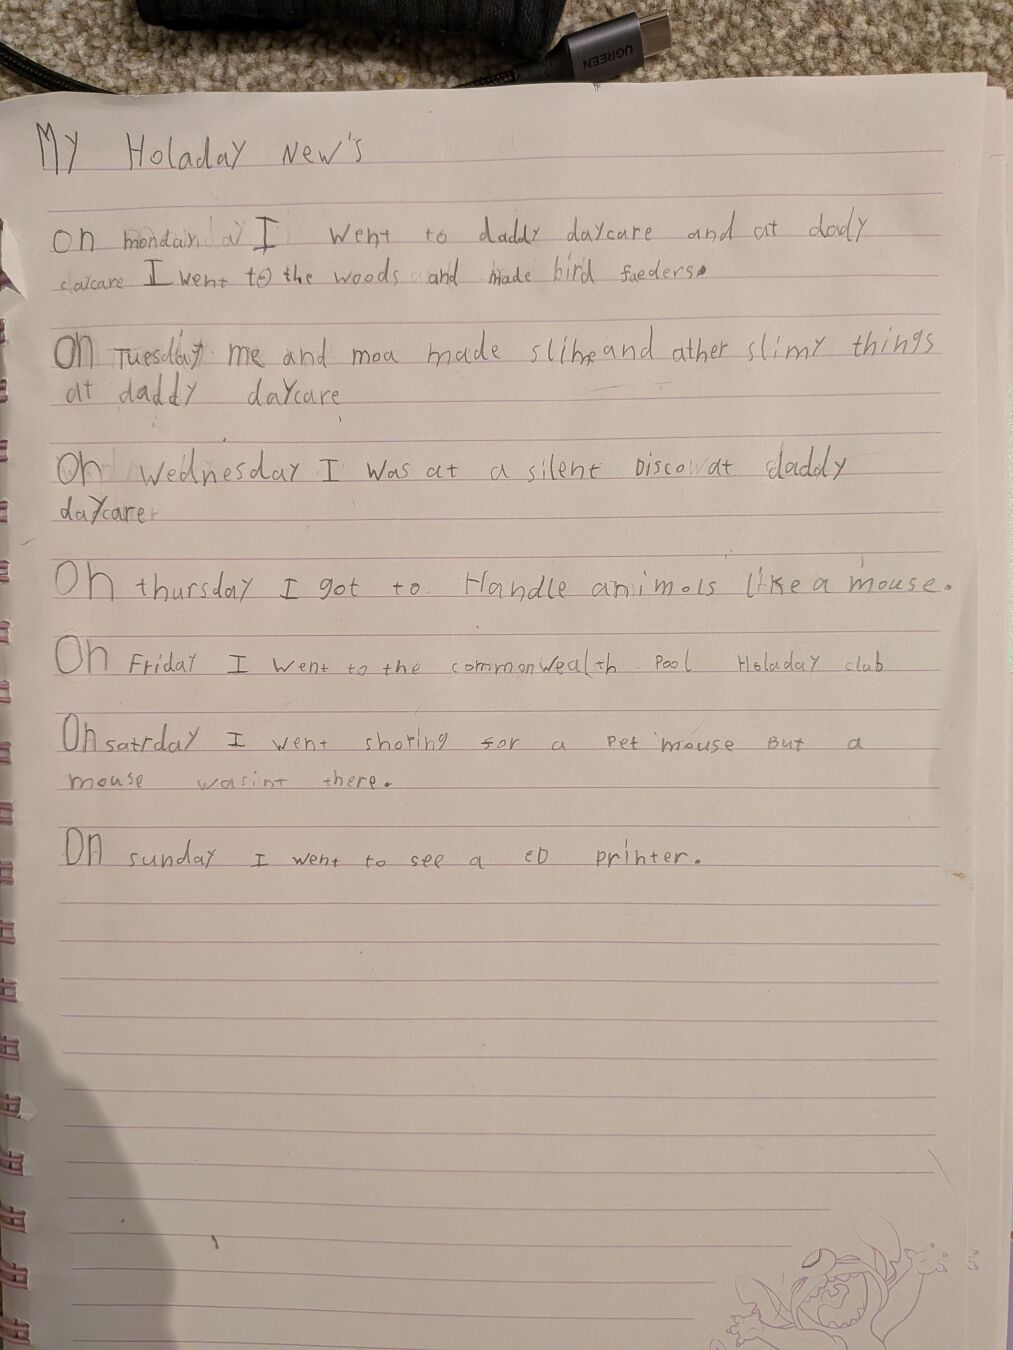 UGREEN
My Holaday New's
On monday I went to daddy daycare and at dady
daycare I went to the woods and made bird faeders.
On Tuesday me and moa made slime and ather slimy things
at daddy daycare
On Wednesday I was at a silent Disco at daddy
daycare
On thursday I got to Handle animols like a mouse.
On Friday I went to the commonwealth Pool Holaday club
On satrday I went shoring for a Pet mouse But a
mouse wasint there.
On sunday I went to see a printer.